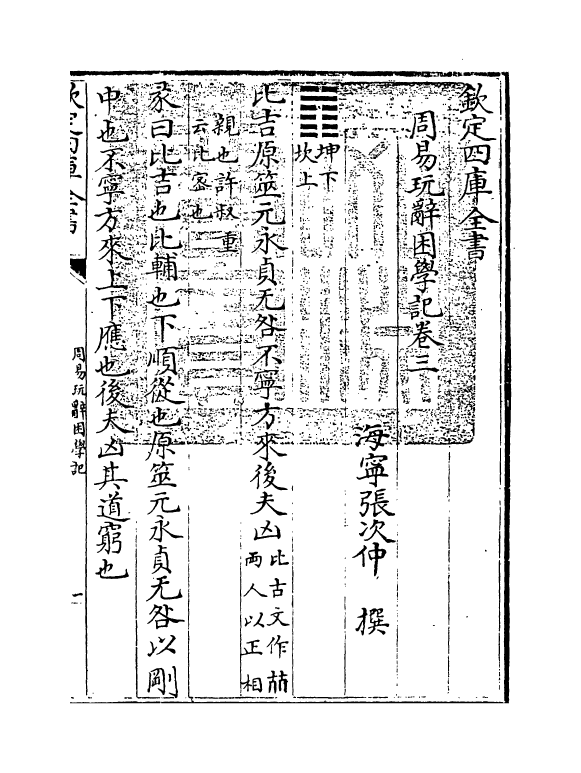 欽定四庫全書
周易玩辭困學記卷三
海寧張次仲 撰
坤下
坎上
比吉原筮元永貞无咎不寧方來後夫凶比古文作
兩人以正相
親也許叔重
云比宻也
彖曰比吉也比輔也下順從也原筮元永貞无咎以剛
中也不寧方來上下應也後夫凶其道窮也
欽定四庫全書
周易玩辭困學記
一